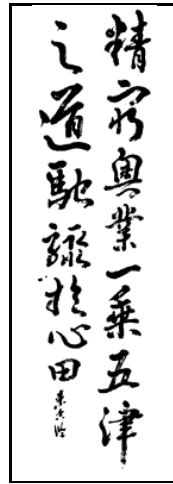 精窮奧業一乘五津
之道馳驟於心田